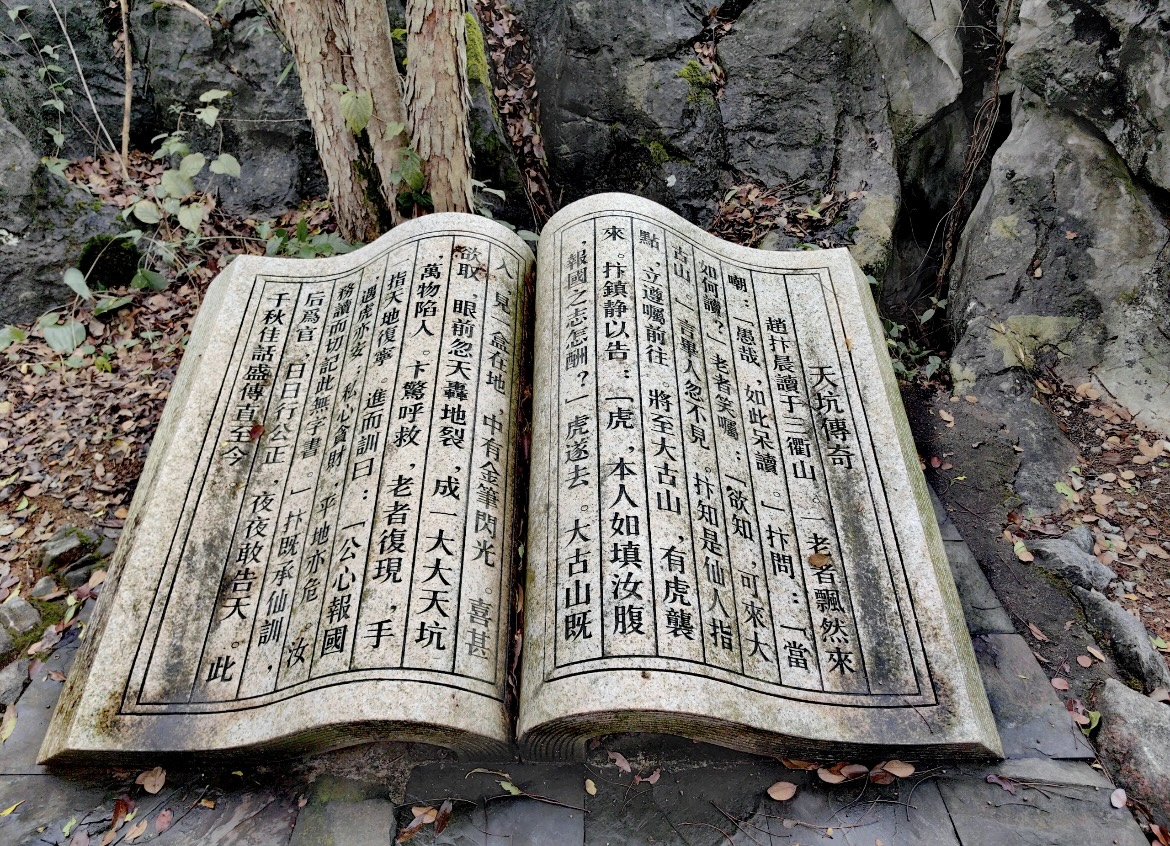 天坑傳奇
趙抃晨讀于三衢山。一老者飄然來
嘲：「愚哉，如此呆讀。」抃問：「當
如何讀？」老者笑囑：「欲知，可來大
古山。」言畢人忽不見。抃知是仙人指
點，立遵囑前往。將至大古山，有虎襲
來。抃鎮静以告：「虎，本人如填汝腹
，報國之志怎酬？」虎遂去。大古山既
入，見一盒在地，中有金筆閃光。喜甚
欲取，眼前忽天轟地裂，成一大大天坑
，萬物陷入。卞驚呼救，老者復現，手
指天地復寧。進而訓曰：「公心報國
，遇虎亦安，私心貪財，平地亦危。汝
務讀而切記此無字書。」抃既承仙訓，
后爲官，日日行公正，夜夜敢告天。此
千秋佳話盛傳直至今